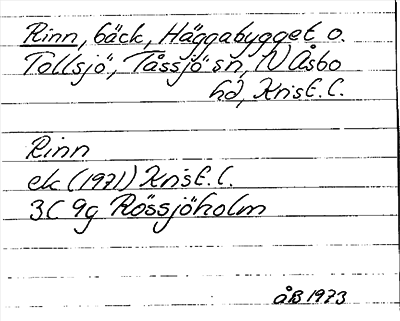 Rinn, bäck, Häggabygget o.
Tollsjö, Tåssjö sn, N Åsbo
hd, Krist. l.
Rinn
ek (1971) Krist. l.
3C 9g Rössjöholm
åB 1973